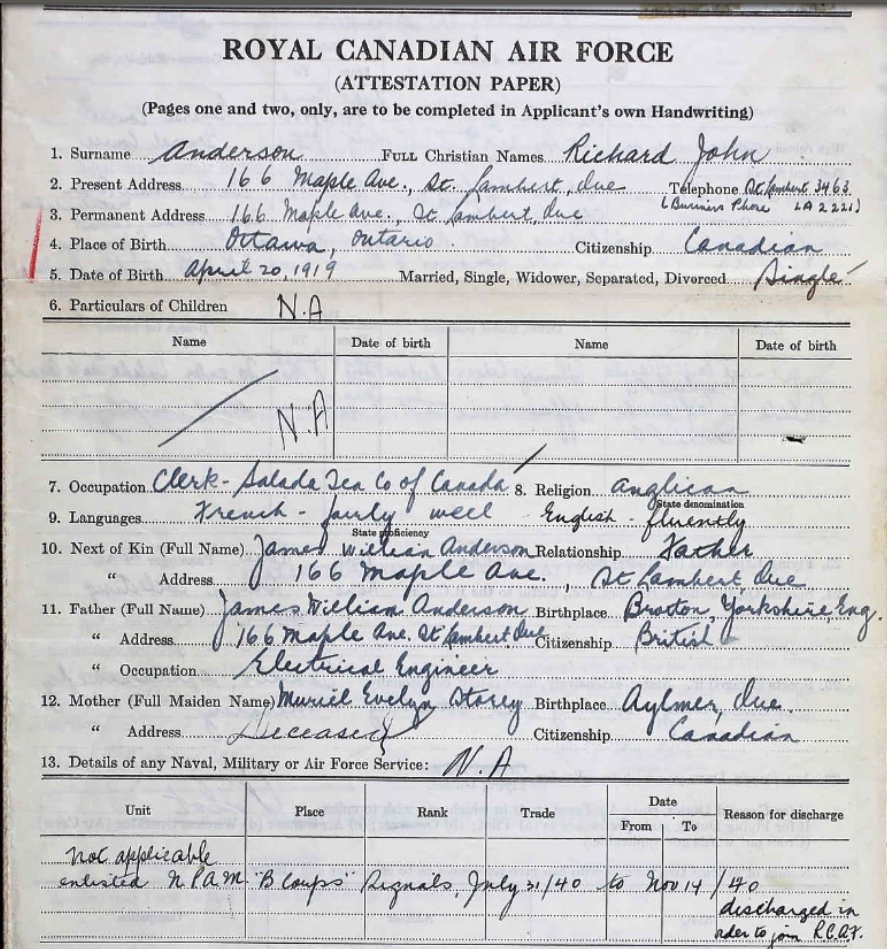 ROYAL CANADIAN AIR FORCE
(ATTESTATION PAPER)
(Pages one and two, only, are to be completed in Applicant's own Handwriting)
1. Surname Anderson FULL Christian Names Richard John
2. Present Address 166 Maple Ave., St. Lambert, Que Telephone St. Lambert 3463
(Business Phone LA 2221)
3. Permanent Address 166 Maple Ave., St Lambert, Que
4. Place of Birth Ottawa, Ontario. Citizenship Canadian
5. Date of Birth April 20, 1919 Married, Single, Widower, Separated, Divorced Single
6. Particulars of Children N.A
Name Date of birth Name Date of birth
N.A
7. Occupation Clerk - Salada Tea Co of Canada 8. Religion Anglican
State denomination
9. Languages French - fairly well English - fluently
State proficiency
10. Next of Kin (Full Name) James William Anderson Relationship Father
" Address 166 Maple Ave., St Lambert, Que
11. Father (Full Name) James William Anderson Birthplace Brotton, Yorkshire, Eng.
" Address 166 Maple Ave. St Lambert Que Citizenship British
" Occupation Electrical Engineer
12. Mother (Full Maiden Name) Muriel Evelyn Storey Birthplace Aylmer, Que.
" Address Deceased Citizenship Canadian
13. Details of any Naval, Military or Air Force Service: N.A
Unit Place Rank Trade Date Reason for discharge
From To
Not applicable
enlisted N.P.A.M. "B Corps" Signals, July 31/40 to Nov 14/40
discharged in
order to join R.C.A.F.